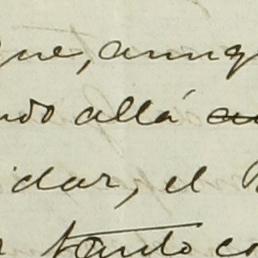 que, aunq
ndo allá
idar, el
tanto co